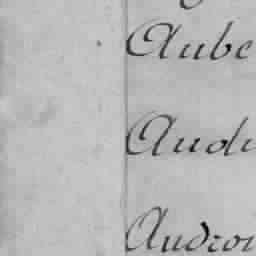 Aube
Audi
Audroi